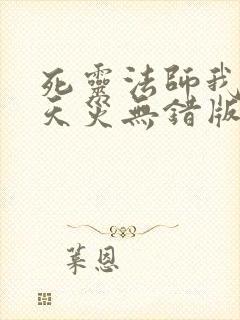 死靈法師我
天災無錯版
葉恩